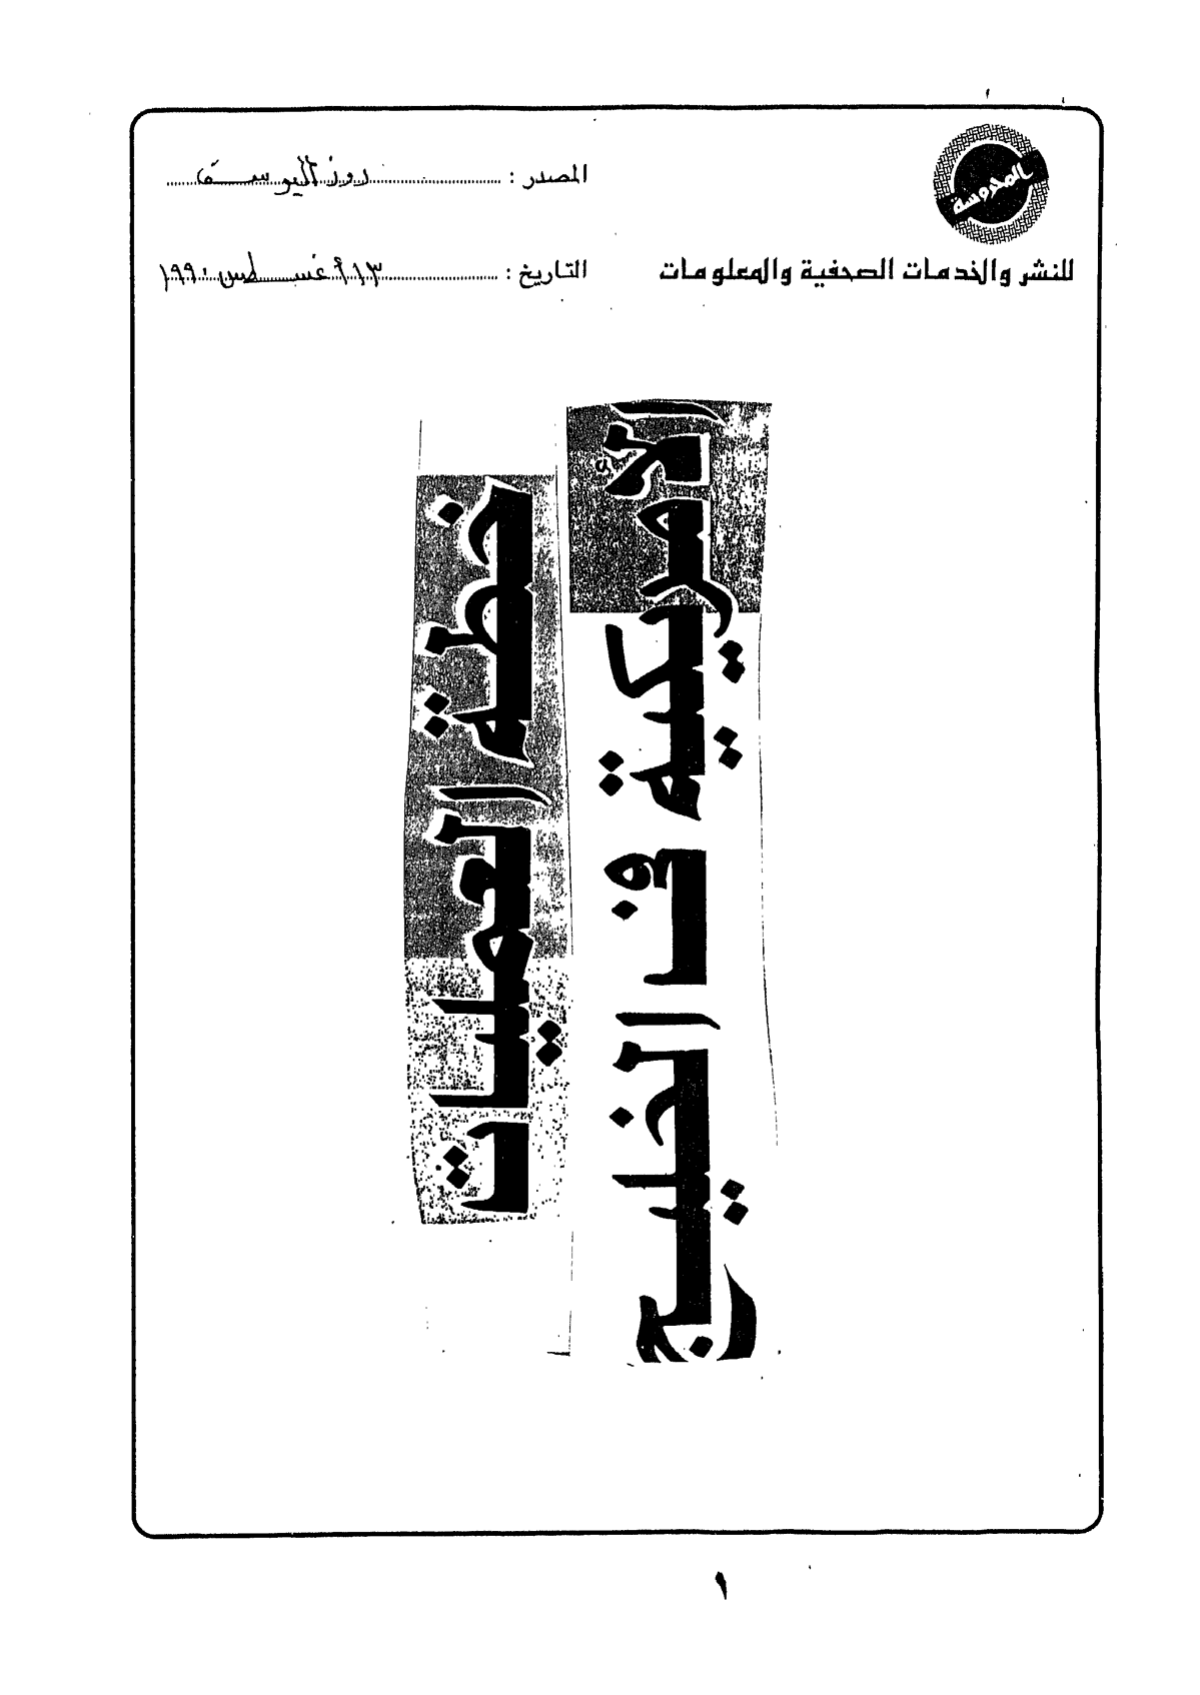 المحروسة
للنشر والخدمات الصحفية والمعلومات
المصدر : روز اليوسف
التاريخ : ١٣ أغسطس ١٩٩٠
خطة العمليات
الأمريكية في الخليج
١